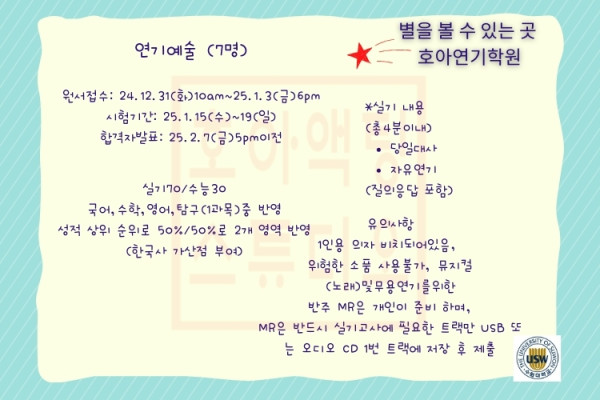 별을 볼 수 있는 곳
호아연기학원
연기예술 (7명)
원서접수: 24.12.31(화)10am~25.1.3(금)6pm
시험기간: 25.1.15(수)~19(일)
합격자발표: 25.2.7(금)5pm이전
실기70/수능30
국어,수학,영어,탐구(1과목)중 반영
성적 상위 순위로 50%/50%로 2개 영역 반영
(한국사 가산점 부여)
*실기 내용
(총4분이내)
• 당일대사
• 자유연기
(질의응답 포함)
유의사항
1인용 의자 비치되어있음,
위험한 소품 사용불가, 뮤지컬
(노래)및무용연기를위한
반주 MR은 개인이 준비 하며,
MR은 반드시 실기고사에 필요한 트랙만 USB 또
는 오디오 CD 1번 트랙에 저장 후 제출
호아액팅
스튜디오
THE UNIVERSITY OF SUWON
USW
수원대학교